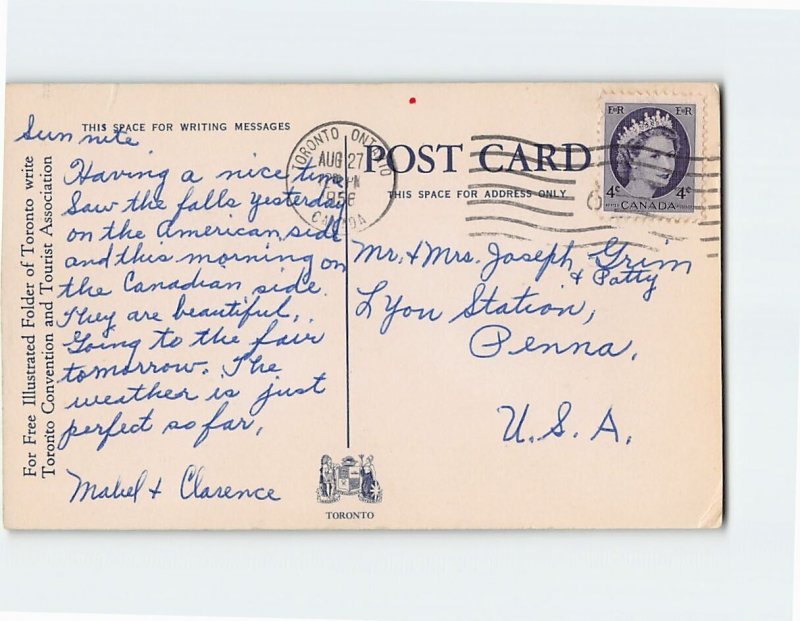 THIS SPACE FOR WRITING MESSAGES
Sun nite
Having a nice time
Saw the falls yesterday
on the American side
and this morning on
the Canadian side.
They are beautiful,
Going to the fair
tomorrow. The
weather is just
perfect so far,
Mabel + Clarence
For Free Illustrated Folder of Toronto write
Toronto Convention and Tourist Association
TORONTO ONTARIO
AUG 27
PM
CANADA
POST CARD
THIS SPACE FOR ADDRESS ONLY
E II R
E II R
4¢
4¢
CANADA
Mr. + Mrs. Joseph Grim
+ Patty
Lyon Station,
Penna.
U.S.A.
TORONTO